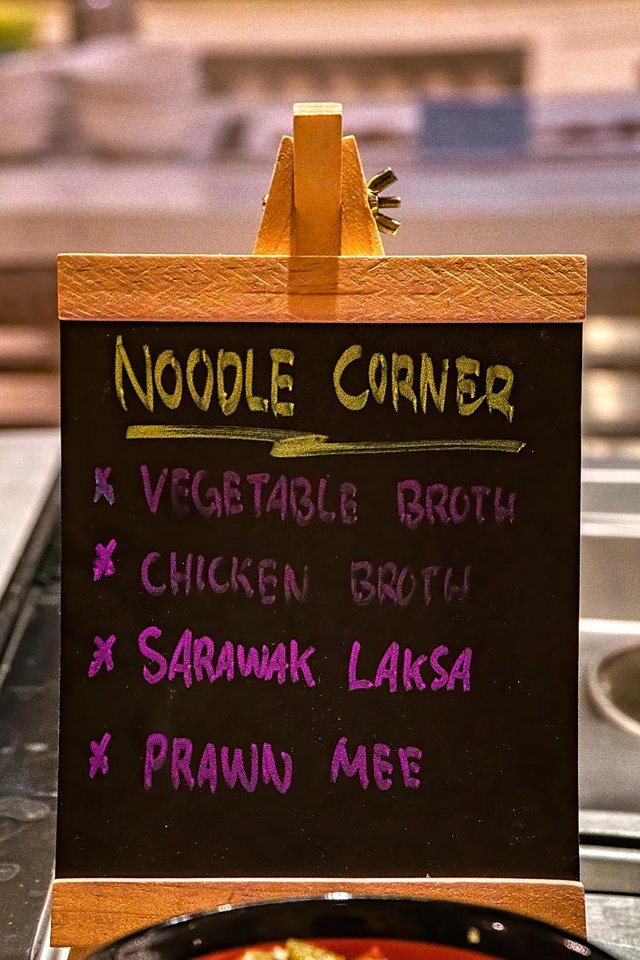 NOODLE CORNER
x VEGETABLE BROTH
x CHICKEN BROTH
x SARAWAK LAKSA
x PRAWN MEE